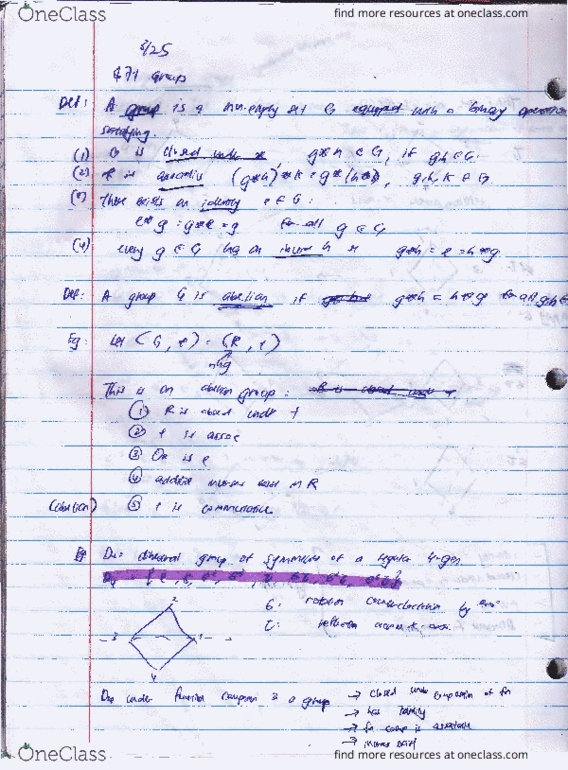 OneClass
find more resources at oneclass.com
3/25
§7.1 groups
Def: A group is a non-empty set G equipped with a binary operation
satisfying.
(1) G is closed under * g*h ∈ G, if g,h ∈ G.
(2) * is associative (g*h)*k = g*(h*k), g,h,k ∈ G
(3) There exists an identity e ∈ G:
e*g = g*e = g for all g ∈ G
(4) every g ∈ G has an inverse h g*h = e = h*g
Def: A group G is abelian if g*h = h*g for all g,h ∈
Eg: Let (G, *) = (R, +)
ring
This is an abelian group:
① R is closed under +
② + is assoc
③ 0R is e
④ additive inverses exist in R
(abelian) ⑤ + is commutative
Eg D4: dihedral group of symmetries of a regular 4-gon.
rotation counterclockwise by
reflection across
2
3 1
4
D4 under function composition is a group → closed under composition of fn
→ has identity
→ fn comp is associative
→ inverses exist
OneClass
find more resources at oneclass.com